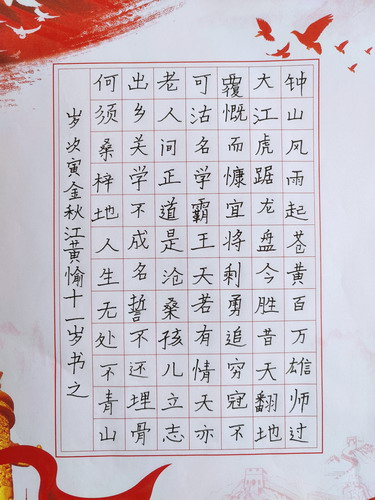 钟山风雨起苍黄百万雄师过
大江虎踞龙盘今胜昔天翻地
覆慨而慷宜将剩勇追穷寇不
可沽名学霸王天若有情天亦
老人间正道是沧桑孩儿立志
出乡关学不成名誓不还埋骨
何须桑梓地人生无处不青山
岁次寅金秋江黄愉十一岁书之